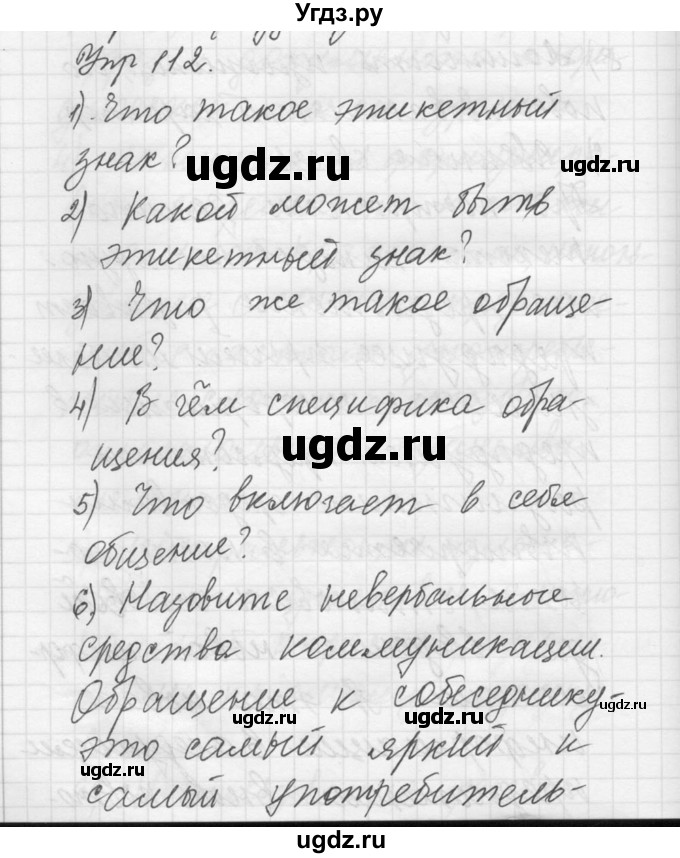 Угдз.ру
Упр 112.
1). Что такое этикетный
знак?
ugdz.ru
ugdz.ru
2) Какой может быть
этикетный знак?
3) Что же такое обраще-
ние?
4) В чём специфика обра-
щения?
ugdz.ru
5) Что включает в себя
общение?
6) Назовите невербальные
средства коммуникации.
Обращение к собеседнику-
ugdz.ru
ugdz.ru
это самый яркий и
ugdz.ru
самый употребитель-
ugdz.ru